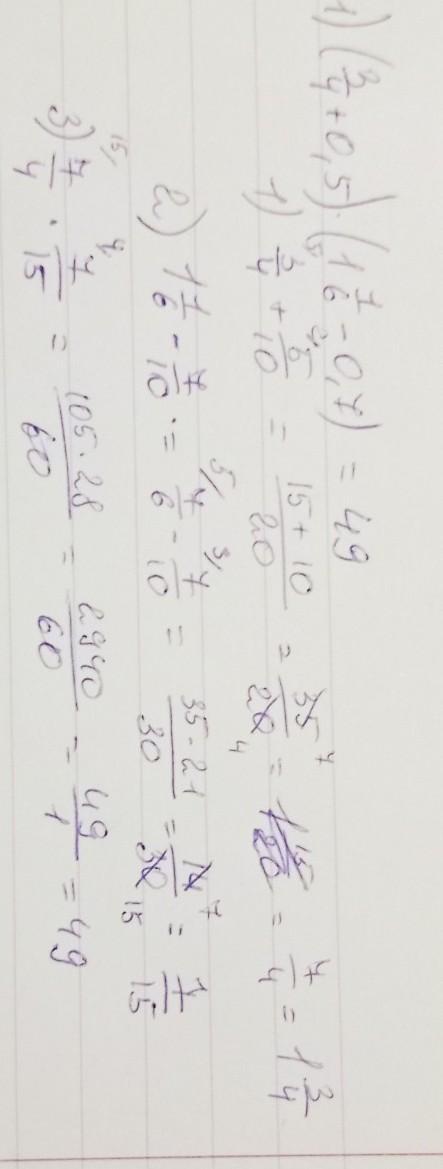 1) (3/4 + 0,5) · (1 1/6 - 0,7) = 49
1) 3/4 ⁵ + 5/10 ² = 15 + 10/20 = 35/20 ⁷ ₄ = 7/4 = 1 3/4
2) 1 1/6 - 7/10 · = ⁵⁾ 7/6 - ³⁾ 7/10 = 35 - 21/30 = 14/30 ⁷ ₁₅ = 7/15
3) ¹⁵⁾ 7/4 · ⁴ 7/15 = 105 · 28/60 = 2940/60 = 49/1 = 49